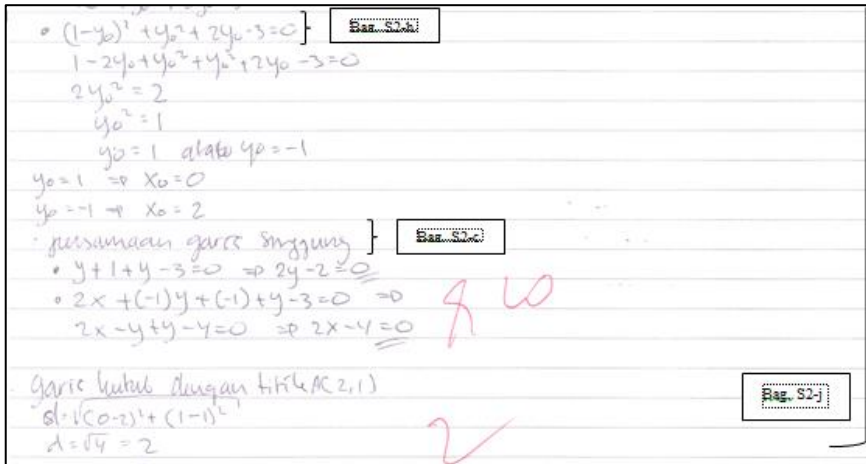 • (1-y₀)² + y₀² + 2y₀ - 3 = 0 } Bag. S2-h
1 - 2y₀ + y₀² + y₀² + 2y₀ - 3 = 0
2y₀² = 2
y₀² = 1
y₀ = 1 atau y₀ = -1
y₀ = 1 ⇒ x₀ = 0
y₀ = -1 ⇒ x₀ = 2
· persamaan garis singgung } Bag. S2-c
• y + 1 + y - 3 = 0 ⇒ 2y - 2 = 0
• 2x + (-1)y + (-1) + y - 3 = 0 ⇒
2x - y + y - 4 = 0 ⇒ 2x - 4 = 0
garis kutub dengan titik A(2,1)
Bag. S2-j
d = √(0-2)² + (1-1)²
d = √4 = 2
2